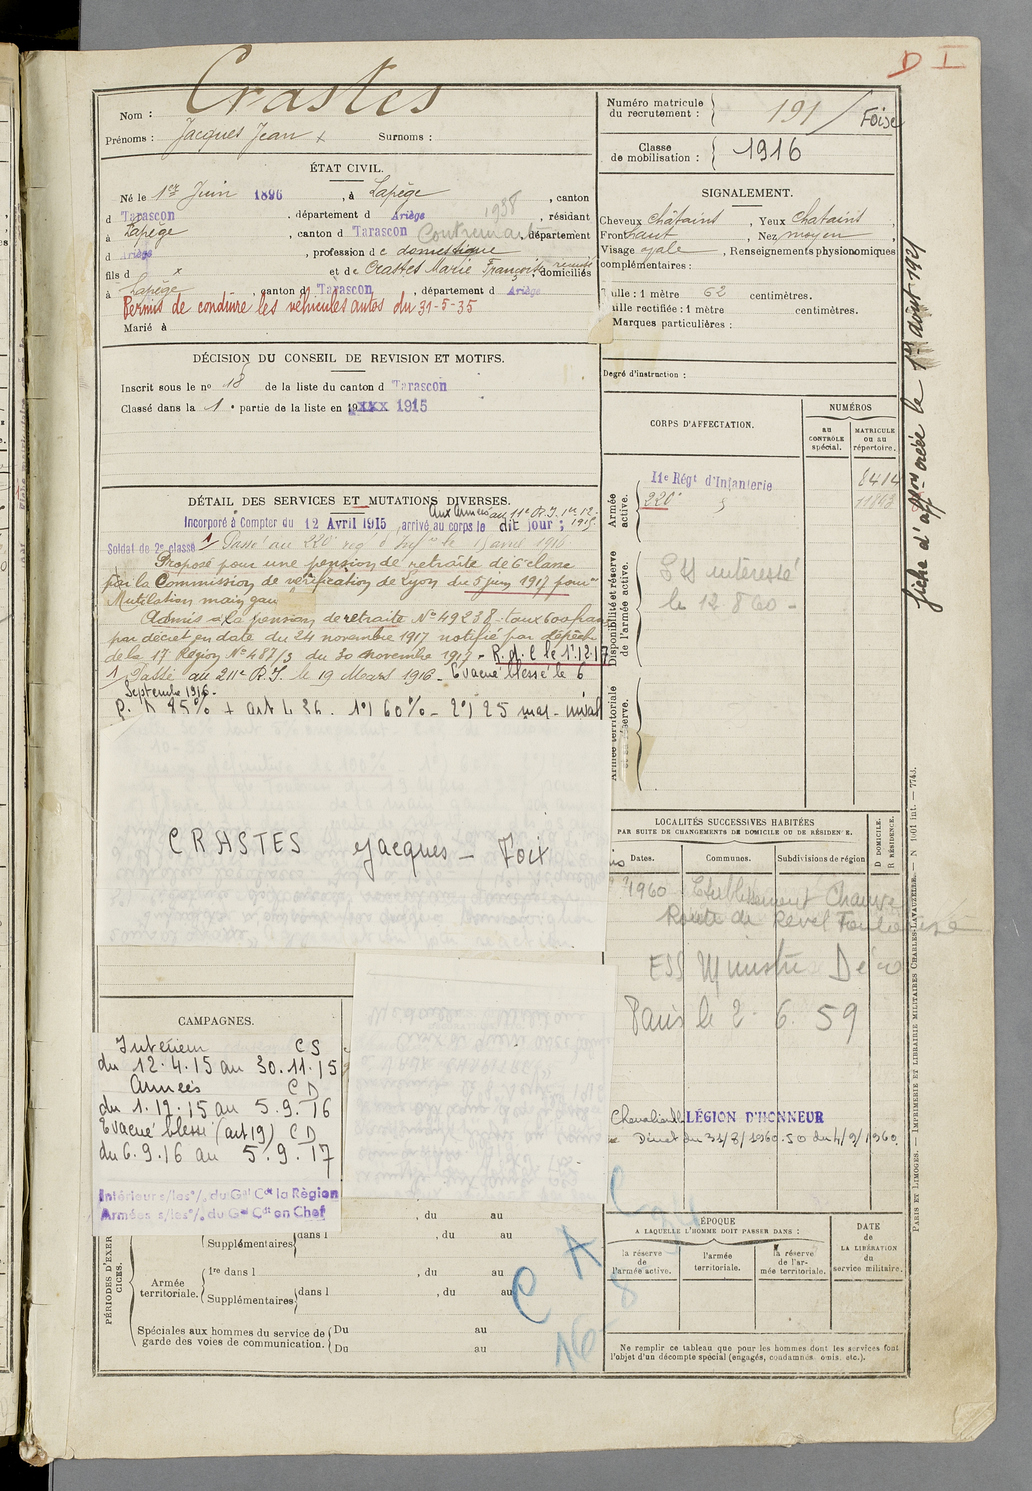 D I
Nom : Crastes
Prénoms : Jacques Jean Surnoms :
ÉTAT CIVIL.
Né le 1er Juin 1896, à Lapège, canton
d Tarascon, département d Ariège, résidant
à Lapège, canton d Tarascon, département
d Ariège, profession de domestique
fils d x et de Crastes Marie Françoise, domiciliés
à Lapège, canton d Tarascon, département d Ariège
Permis de conduire les véhicules autos du 31-5-35
Marié à
DÉCISION DU CONSEIL DE REVISION ET MOTIFS.
Inscrit sous le no 18 de la liste du canton d Tarascon
Classé dans la 1e partie de la liste en 19xxx 1915
DÉTAIL DES SERVICES ET MUTATIONS DIVERSES.
Aux Armées au 11e R.I. 1er 12-1915
Incorporé à Compter du 12 Avril 1915, arrivé au corps le dit jour;
Soldat de 2e classe Passé au 220e rég. d'Infie le 15 avril 1916
Proposé pour une pension de retraite de 6e classe
par la Commission de vérification de Lyon du 5 juin 1917 pour
Mutilation main gau
Admis à la pension de retraite No 49238 - taux 600 francs
par décret en date du 24 novembre 1917 notifié par dépêche
de la 17 Région No 487/3 du 30 novembre 1917 - R.d.c le 1.12.17
Passé au 211e R.I. le 19 Mars 1916 - Evacué blessé le 6
Septembre 1916 -
P. D 85% + art L 36. 1°) 60% - 2°) 25
CRASTES Jacques - Foix
CAMPAGNES.
Intérieur CS
du 12.4.15 au 30.11.15
Armées CD
du 1.12.15 au 5.9.16
Evacué blessé (art 19) CD
du 6.9.16 au 5.9.17
Intérieur s/les o/. du Gal Ct la Règion
Armées s/les o/. du Gal Ct en Chef
PÉRIODES D'EXERCICES.
, du au
Supplémentaires dans l , du au
Armée territoriale.
1re dans l , du au
Supplémentaires dans l , du au
Spéciales aux hommes du service de garde des voies de communication.
Du au
Du au
C A C
16
Numéro matricule du recrutement : 191 / Foix
Classe de mobilisation : 1916
SIGNALEMENT.
Cheveux châtains, Yeux Chatains,
Front haut, Nez moyen,
Visage ovale, Renseignements physionomiques
complémentaires :
Taille : 1 mètre 62 centimètres.
Taille rectifiée : 1 mètre centimètres.
Marques particulières :
Degré d'instruction :
CORPS D'AFFECTATION.
NUMÉROS
au CONTRÔLE spécial.
MATRICULE ou au répertoire.
Armée active.
11e Régt d'Infanterie 8414
220e
Disponibilité et réserve de l'armée active.
intéressé
le 12 8 60 -
Armée territoriale et sa réserve.
LOCALITÉS SUCCESSIVES HABITÉES
PAR SUITE DE CHANGEMENTS DE DOMICILE OU DE RÉSIDENCE.
Dates. Communes. Subdivisions de région D DOMICILE. R RÉSIDENCE.
1960 Etablissement
Route de Revel Toulouse
ESS Ministre
Paris le 2. 6. 59
Chevalier LÉGION D'HONNEUR
Décret du 31/8/1960. JO du 4/9/1960.
ÉPOQUE
A LAQUELLE L'HOMME DOIT PASSER DANS :
la réserve de l'armée active.
l'armée territoriale.
la réserve de l'armée territoriale.
DATE de LA LIBÉRATION du service militaire.
Ne remplir ce tableau que pour les hommes dont les services font
l'objet d'un décompte spécial (engagés, condamnés, omis, etc.).
PARIS ET LIMOGES. — IMPRIMERIE ET LIBRAIRIE MILITAIRES CHARLES-LAVAUZELLE. — N 1001 int. — 7743.